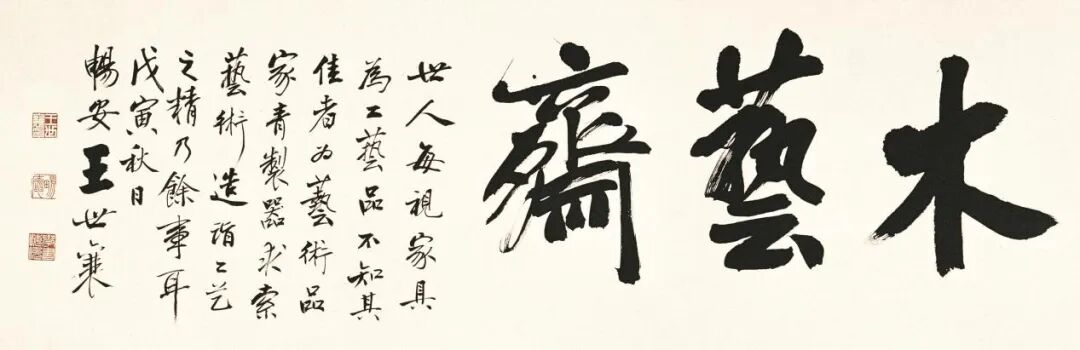 木藝齋
世人每視家具
為工藝品不知其
佳者为藝術品
家青製器求索
藝術造詣工艺
之精乃餘事耳
戊寅秋日
暢安王世襄